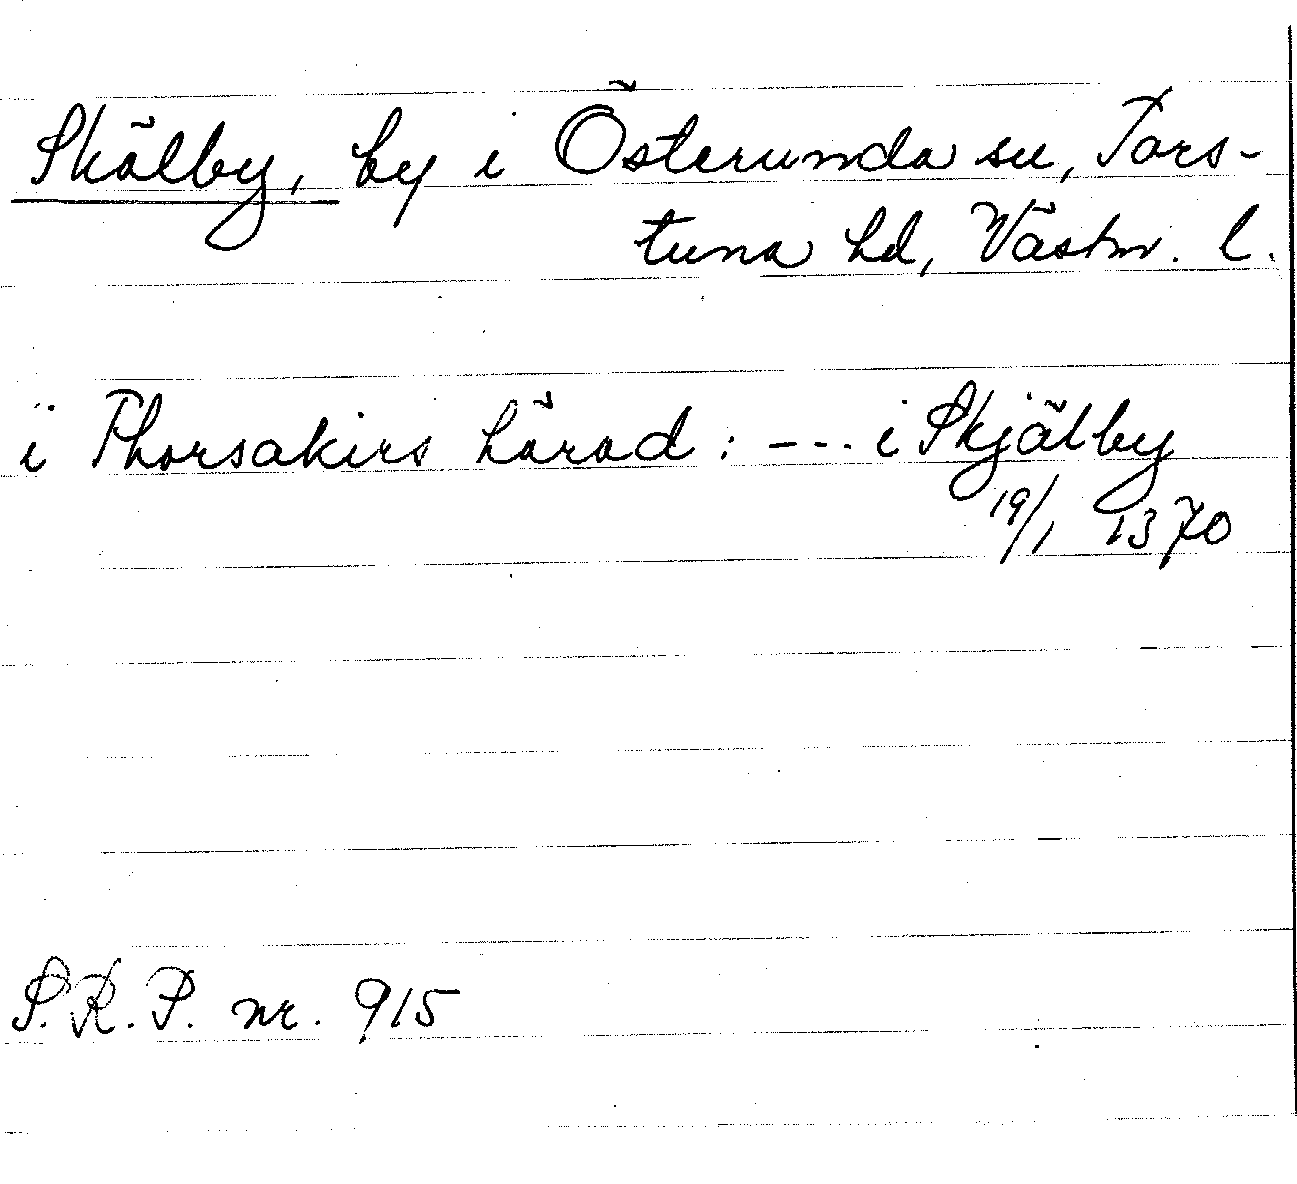 Skälby, by i Österunda sn, Tors-
tuna hd, Västm. l.
i Thorsakirs härad : --- i Skjälby
19/1 1370
S.R.P. nr. 915